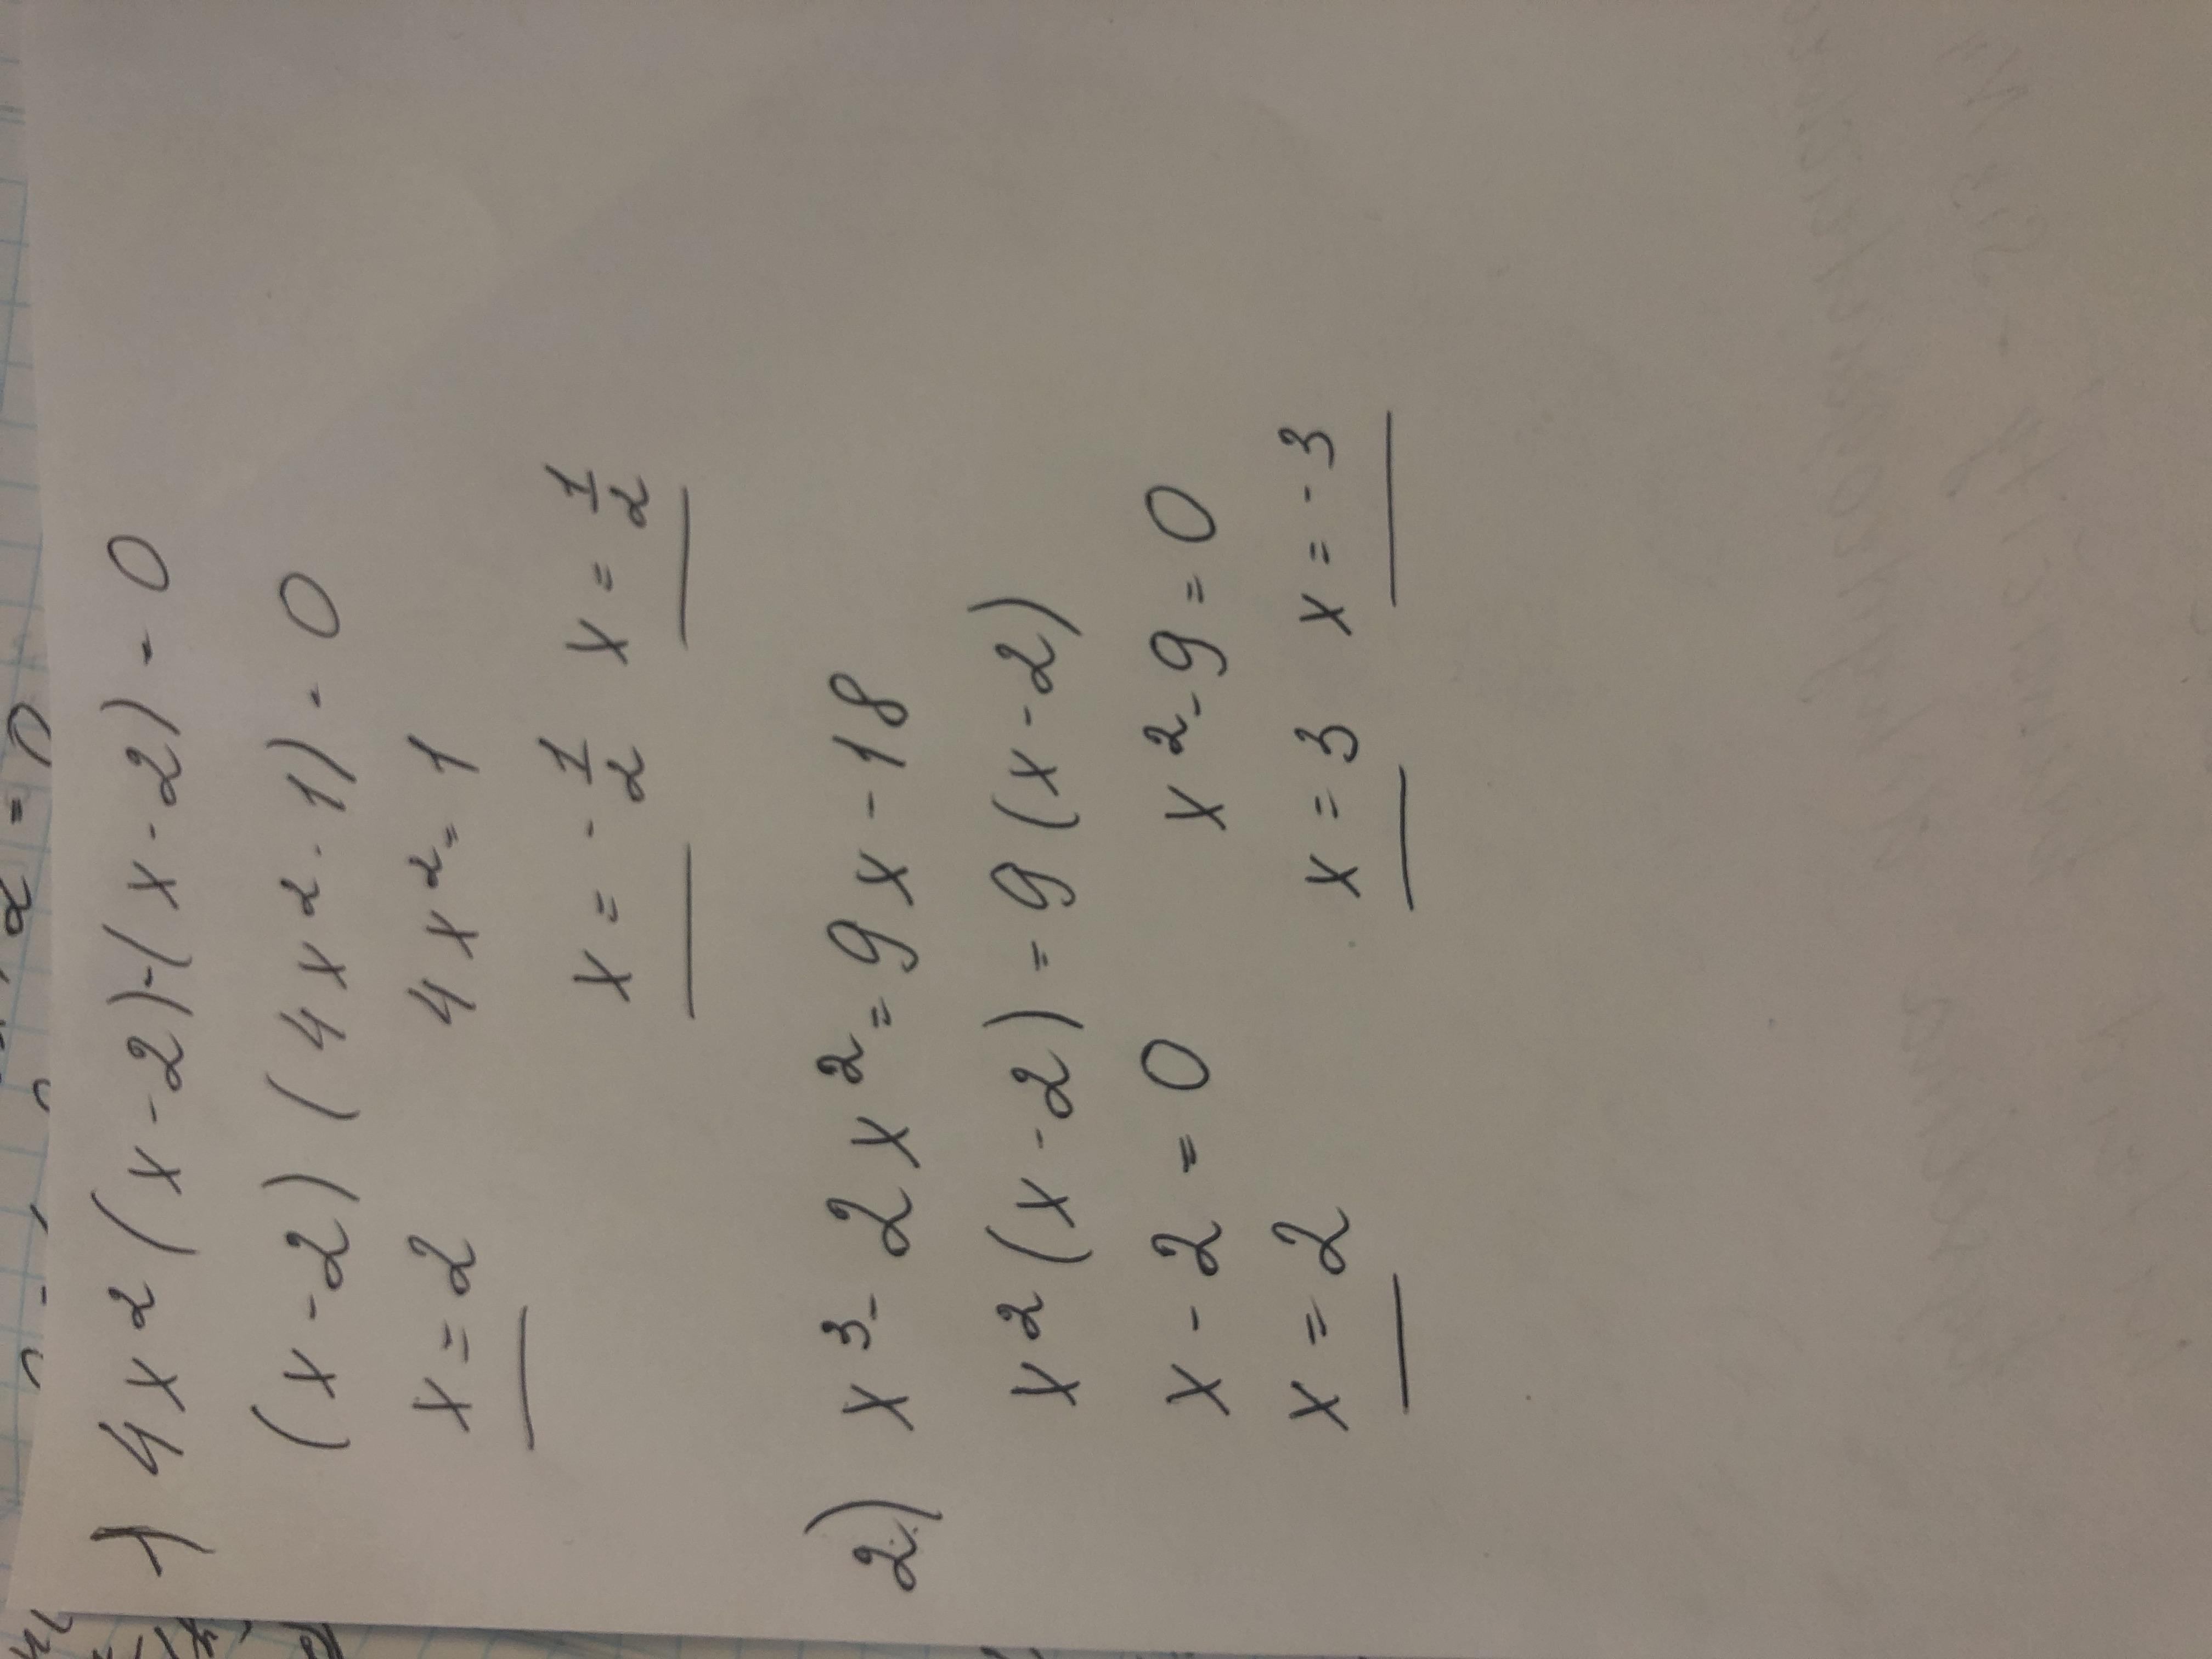 1) 4x²(x-2)-(x-2)-0
(x-2)(4x²-1)-0
x=2 4x²=1
x=-1/2 x=1/2
2) x³-2x²=9x-18
x²(x-2)=9(x-2)
x-2=0 x²-9=0
x=2 x=3 x=-3